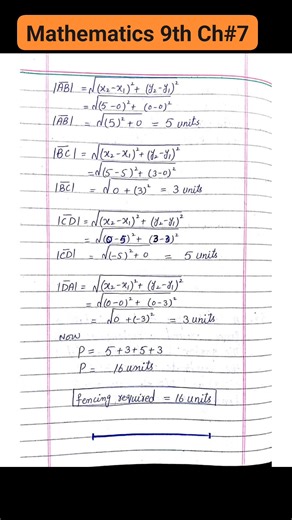 Mathematics 9th Ch#7
|AB̅| = √(x₂-x₁)² + (y₂-y₁)²
= √(5-0)² + (0-0)²
|AB̅| = √(5)² + 0 = 5 units
|BC̅| = √(x₂-x₁)² + (y₂-y₁)²
= √(5-5)² + (3-0)²
|BC̅| = √0 + (3)² = 3 units
|CD̅| = √(x₂-x₁)² + (y₂-y₁)²
= √(0-5)² + (3-3)²
|CD̅| = √(-5)² + 0 = 5 units
|DA̅| = √(x₂-x₁)² + (y₂-y₁)²
= √(0-0)² + (0-3)²
= √0 + (-3)² = 3 units
Now
P = 5+3+5+3
P = 16 units
fencing required = 16 units